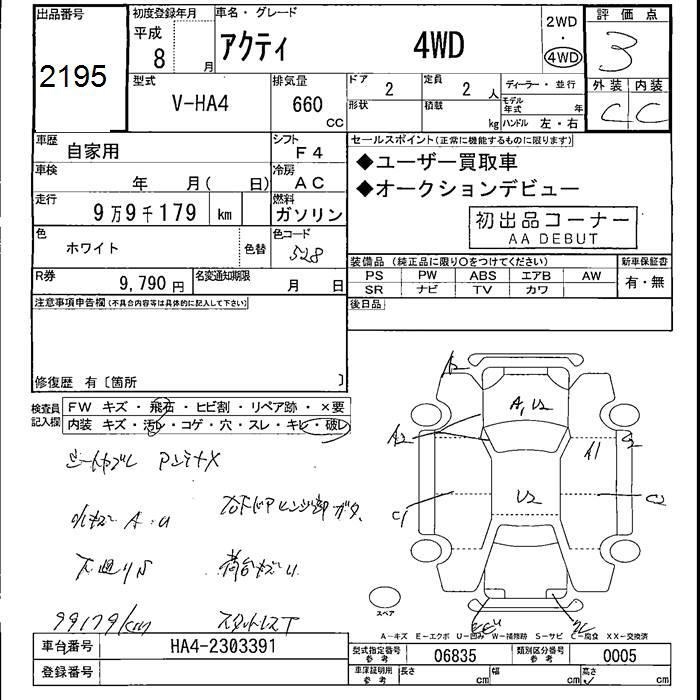 出品番号
2195
初度登録年月
平成
8
月
車名・グレード
アクティ 4WD
2WD
・
4WD
評価点
3
外装 内装
C C
型式
V-HA4
排気量
660
CC
ドア
2
定員
2 人
ディーラー・並行
形状
積載
kg
モデル
年式
年
ハンドル 左・右
車歴
自家用
シフト
F4
車検
年 月( 日)
冷房
AC
走行
9万9千179 km
燃料
ガソリン
色
ホワイト
色替
色コード
528
R券
9,790 円
名変通知期限
月 日
セールスポイント(正常に機能するものに限ります)
◆ユーザー買取車
◆オークションデビュー
初出品コーナー
AA DEBUT
装備品 (純正品に限り○をつけてください)
新車保証書
PS PW ABS エアB AW
SR ナビ TV カワ
有・無
後日品
注意事項申告欄(不具合内容等は具体的に記載して下さい)
修復歴 有〔箇所 〕
検査員
記入欄
FW キズ・飛石・ヒビ割・リペア跡・×要
内装 キズ・汚レ・コゲ・穴・スレ・キレ・破レ
アンテナX
A・U
下廻りS
荷台キズU
99179km
スタッドレスT
A2
A,U2
A2
A1
U2
C1
C2
スペア
A-キズ E-エクボ U-凹み W-補修跡 S-サビ C-腐食 XX-交換済
車台番号
HA4-2303391
登録番号
型式指定番号
参考
06835
類別区分番号
参考
0005
車庫証明用
参考
長さ cm
幅 cm
高さ cm